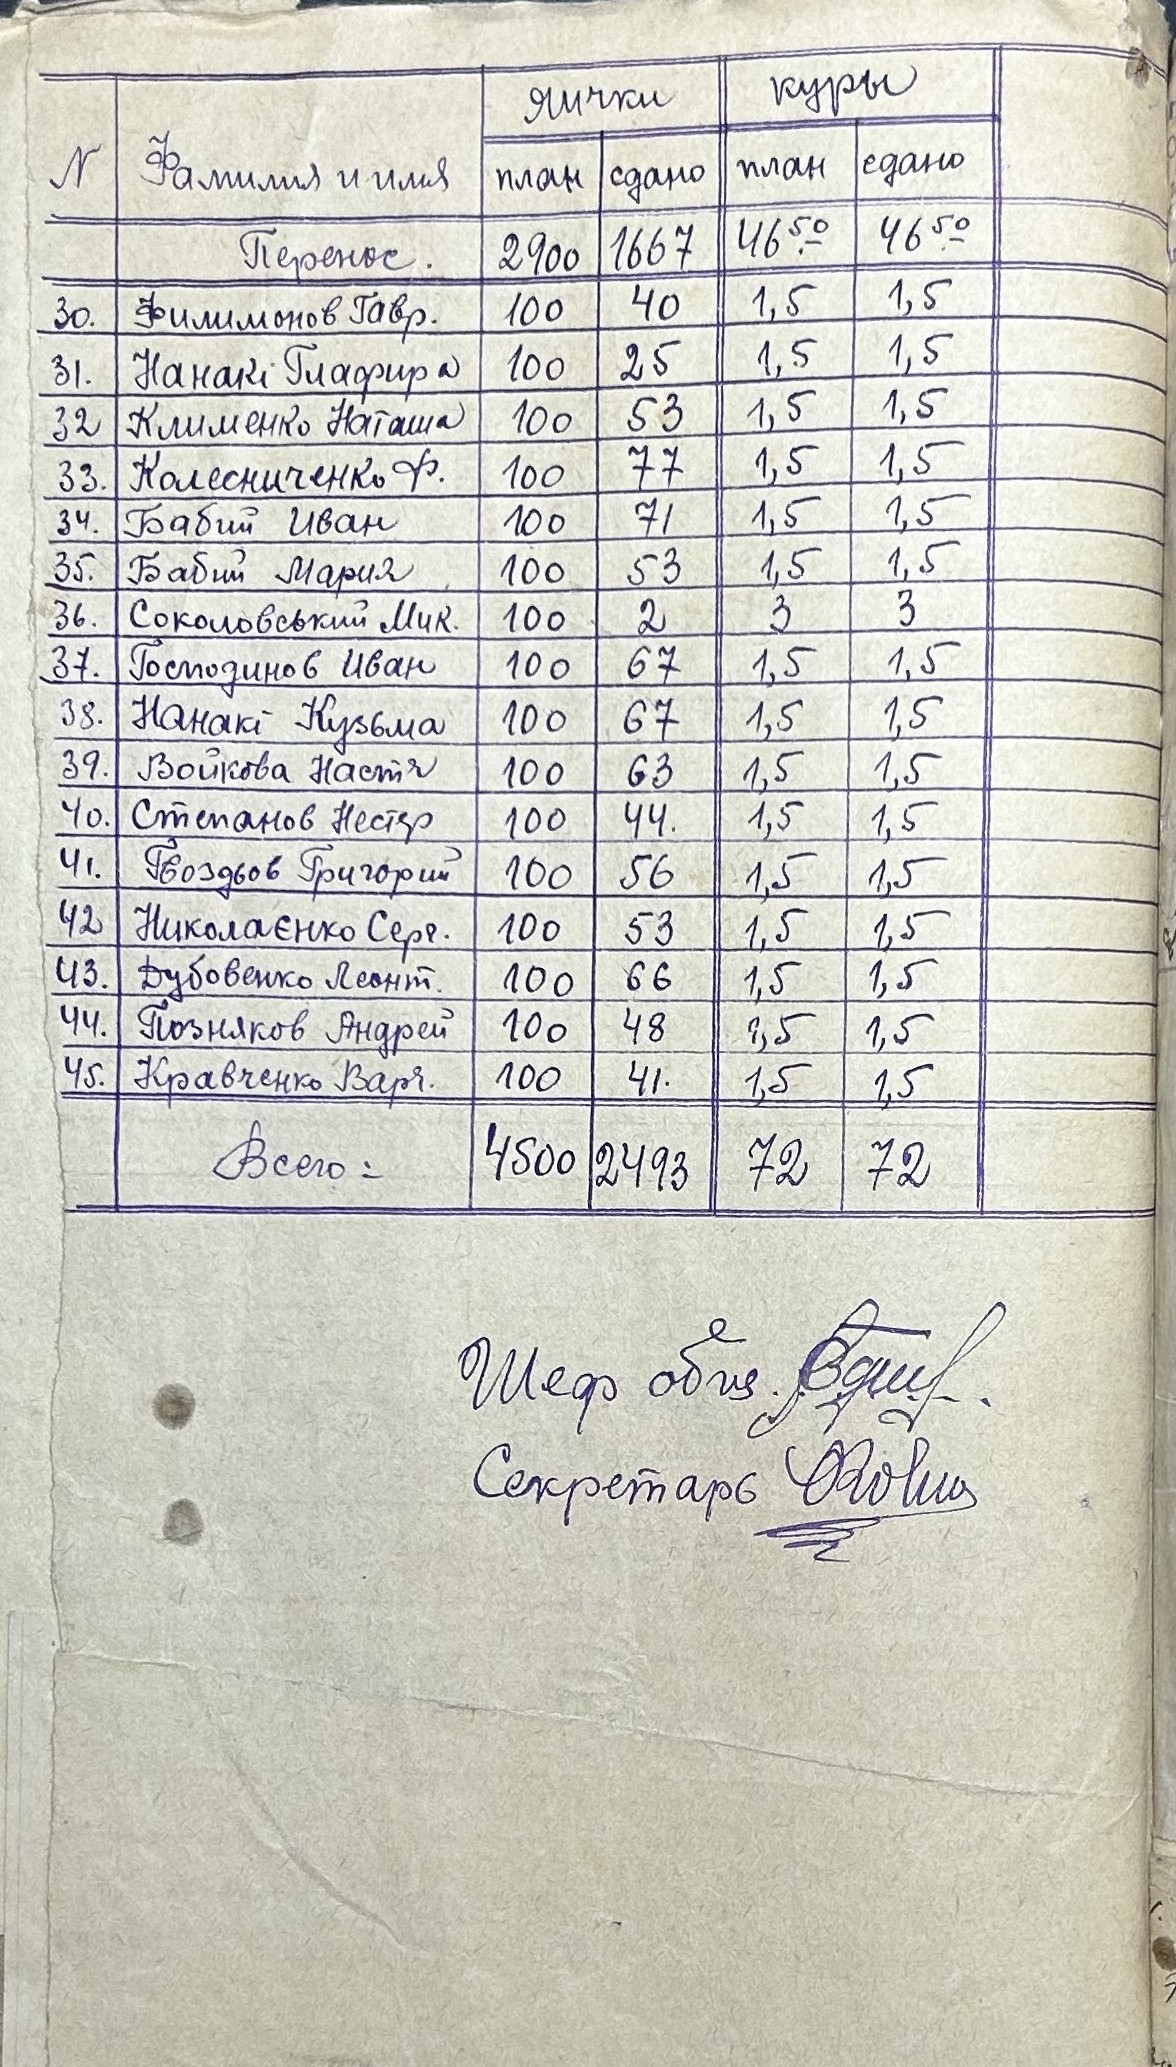 яички куры
N Фамилия и имя план сдано план сдано
Перенос. 2900 1667 46 50 46 50
30. Филимонов Гавр. 100 40 1,5 1,5
31. Нанакі Глафира 100 25 1,5 1,5
32 Клименко Наташа 100 53 1,5 1,5
33. Колесниченко Ф. 100 77 1,5 1,5
34. Бабий Иван 100 71 1,5 1,5
35. Бабий Мария 100 53 1,5 1,5
36. Соколовський Мик. 100 2 3 3
37. Господинов Иван 100 67 1,5 1,5
38. Нанакі Кузьма 100 67 1,5 1,5
39. Войкова Настя 100 63 1,5 1,5
40. Степанов Нестер 100 44. 1,5 1,5
41. Гвоздьов Григорий 100 56 1,5 1,5
42 Николаєнко Серг. 100 53 1,5 1,5
43. Дубовенко Леонт. 100 66 1,5 1,5
44. Позняков Андрей 100 48 1,5 1,5
45. Кравченко Варч. 100 41. 1,5 1,5
Всего = 4500 2493 72 72
Шеф общ.
Секретарь